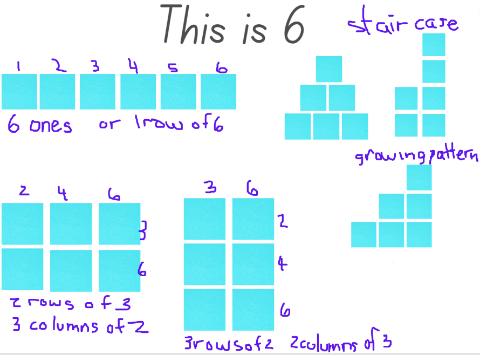 This is 6
stair case
1 2 3 4 5 6
6 ones or 1 row of 6
growing pattern
2 4 6
3
6
2 rows of 3
3 columns of 2
3 6
2
4
6
3 rows of 2 2 columns of 3